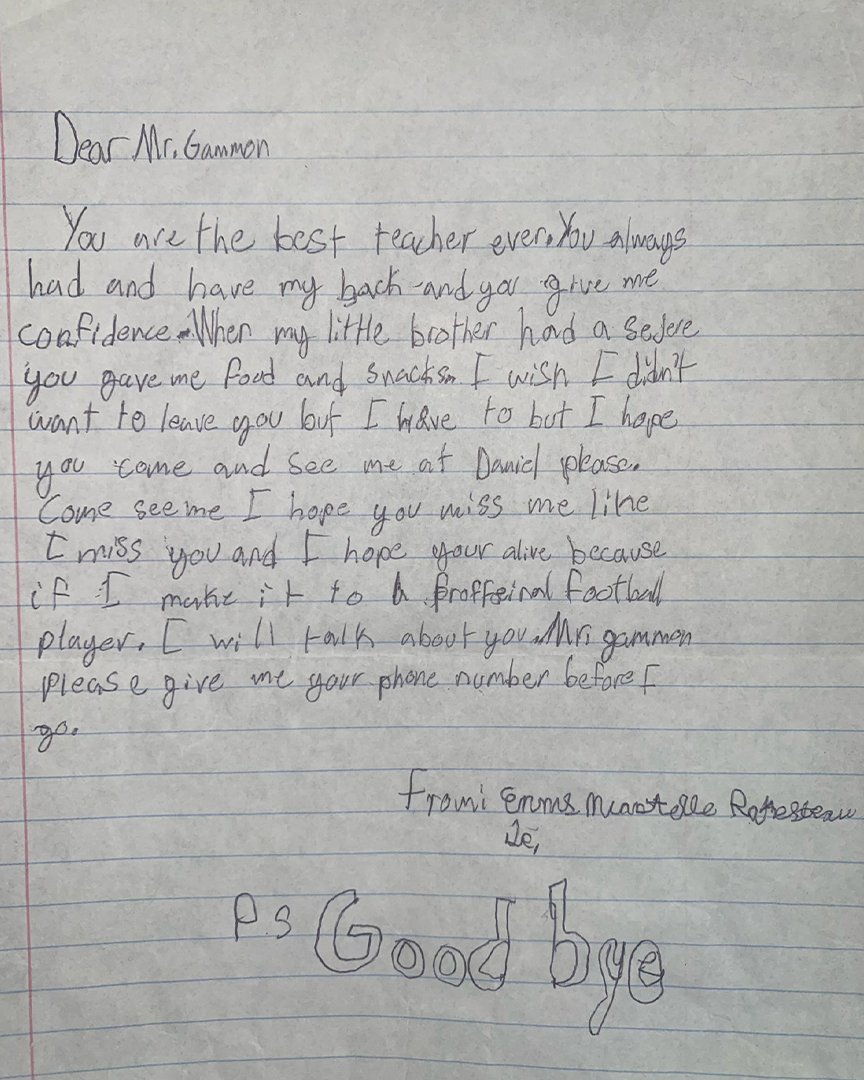 Dear Mr. Gammon
You are the best teacher ever. You always
had and have my back and you give me
confidence. When my little brother had a sedere
you gave me food and snacks. I wish I didn't
want to leave you but I have to but I hope
you come and see me at Daniel please.
Come see me I hope you miss me like
I miss you and I hope your alive because
if I make it to a proffeinal football
player. I will talk about you. Mr. gammon
please give me your phone number before I
go.
From:
P.S Good bye